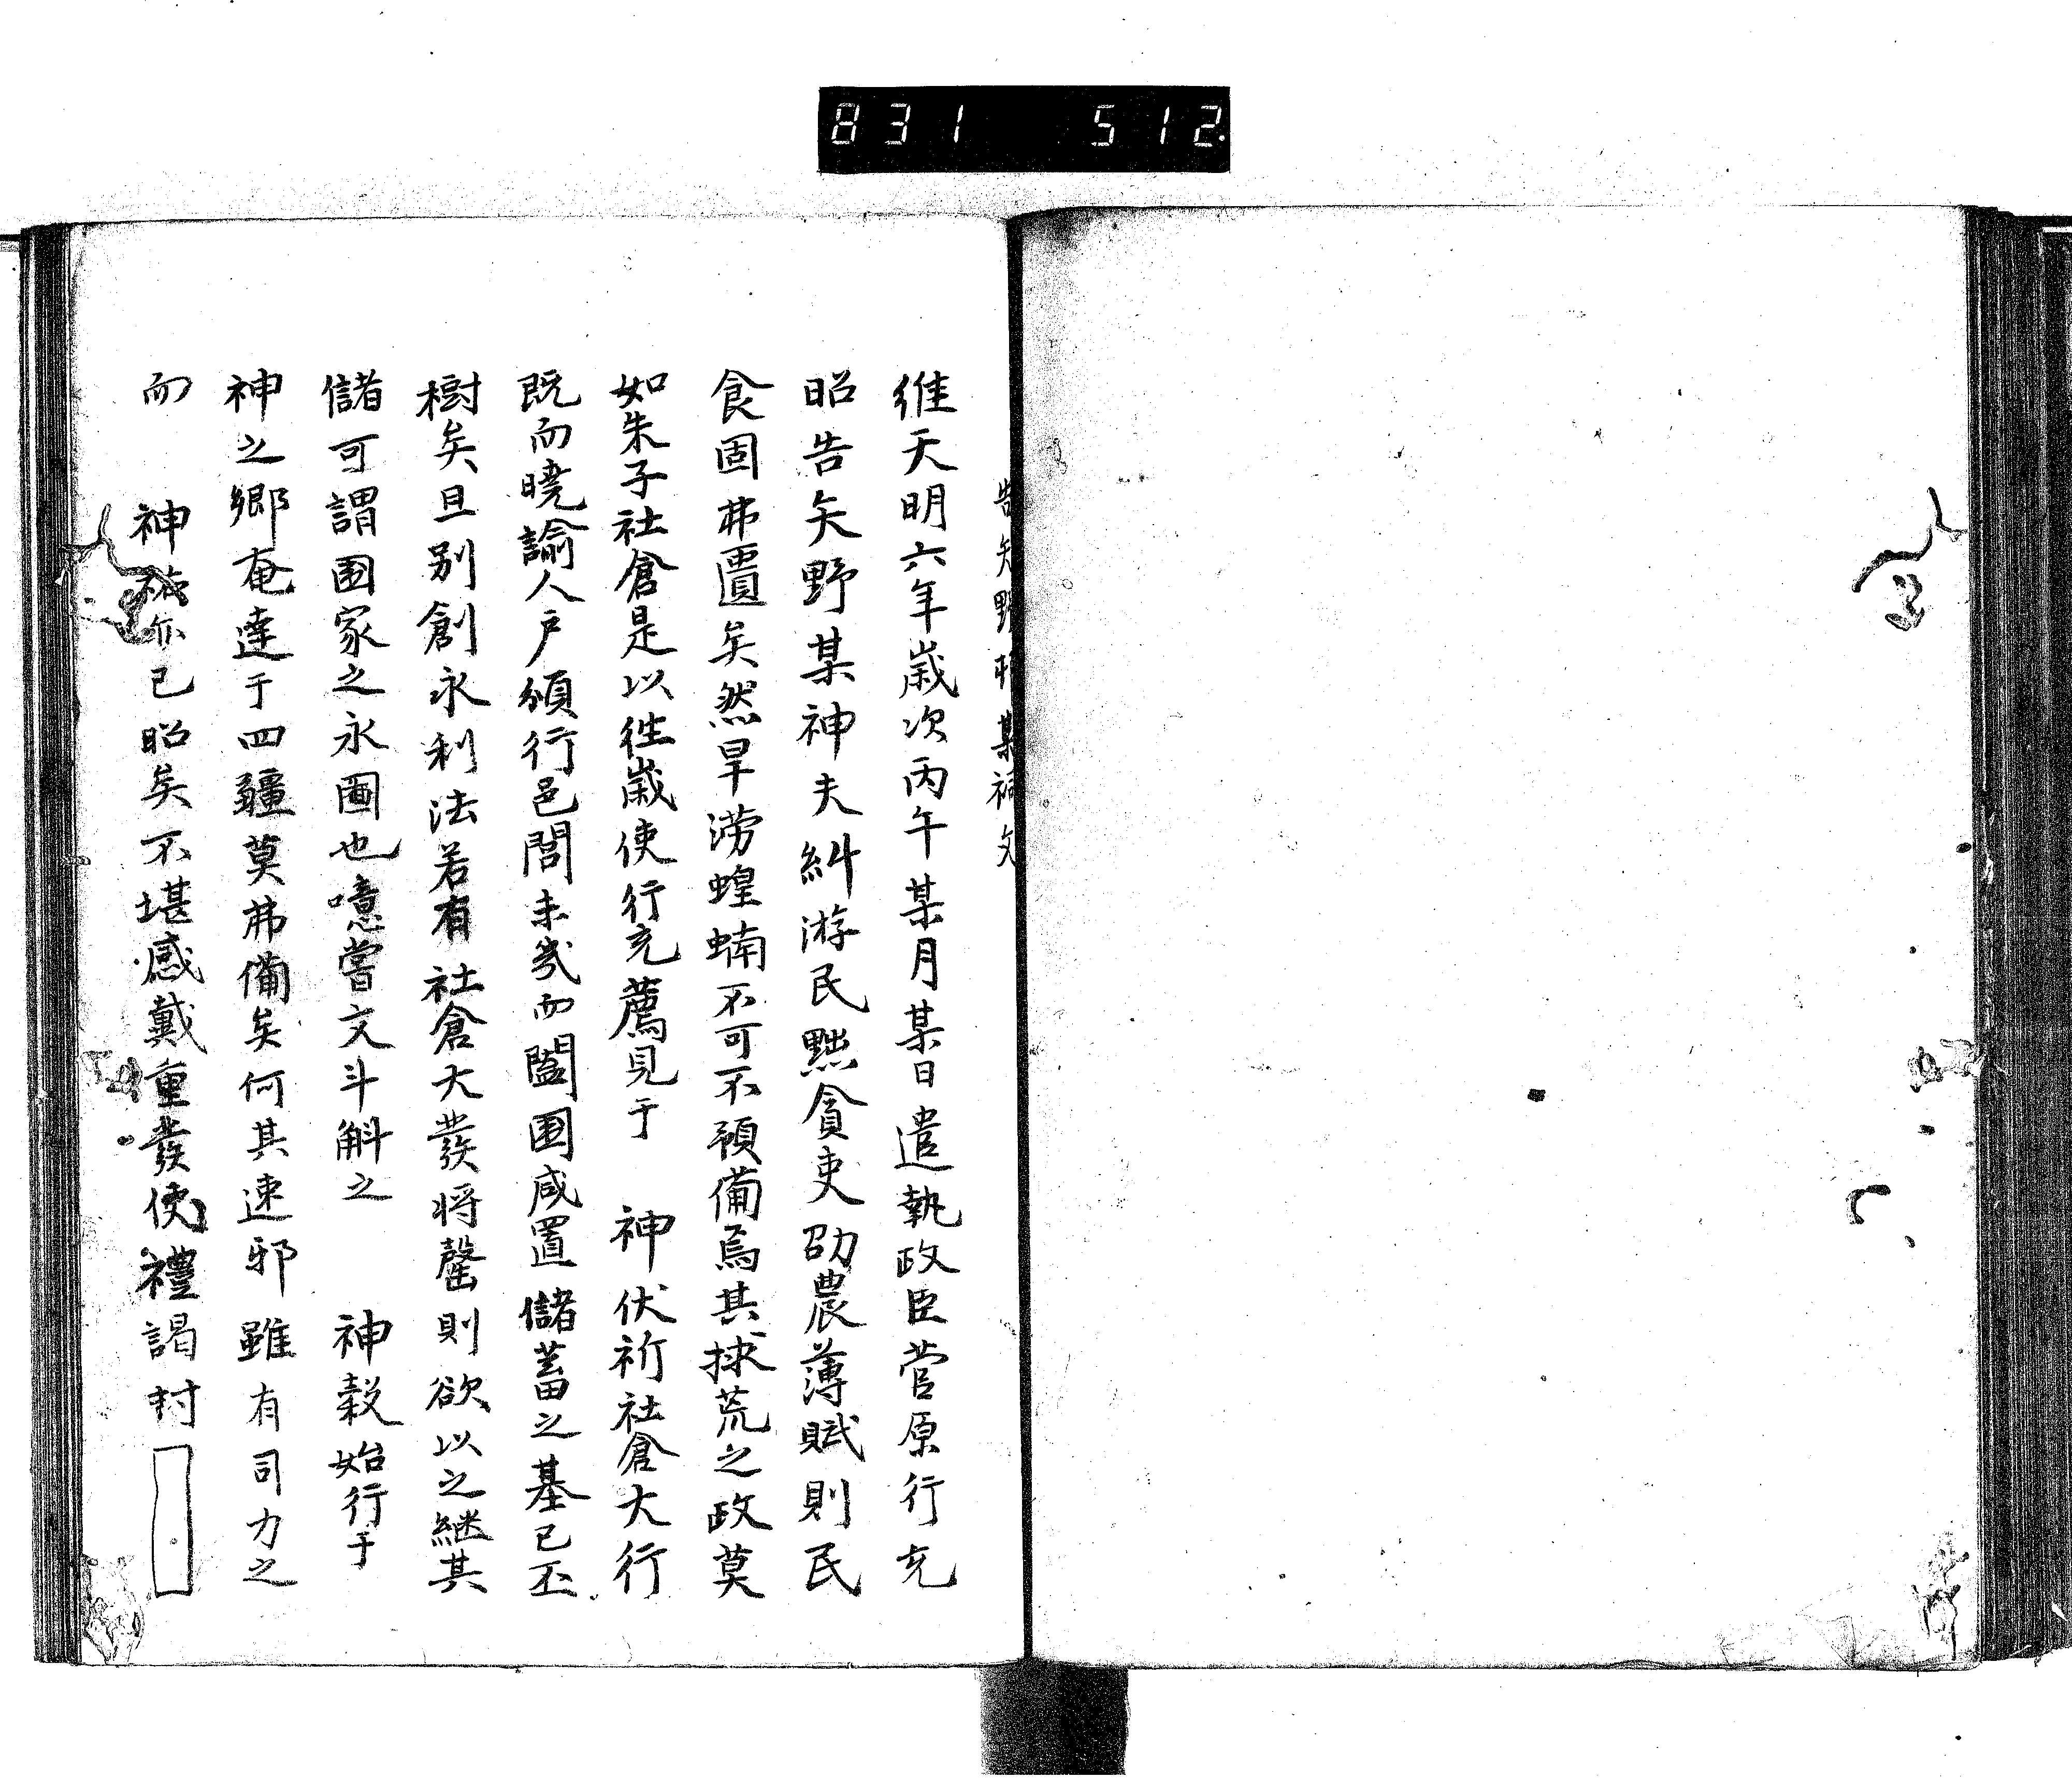 831 512
告矢野某祠文
維天明六年歳次丙午某月某日遣執政臣菅原行充
昭告矢野某神夫糾游民黜貪吏劭農薄賦則民
食固弗匱矣然旱澇蝗蝻不可不預備焉其捄荒之政莫
如朱子社倉是以徃歳使行充薦見于　神伏祈社倉大行
既而曉諭人戸頒行邑閭未幾而闔國咸置儲蓄之基已丕
樹矣且別創永利法若有社倉大發將罄則欲以之継其
儲可謂国家之永圖也噫嘗文斗斛之　神穀始行于
神之郷奄達于四疆莫弗備矣何其速邪雖有司力之
而　神亦已昭矣不堪感戴重發使禮謁封